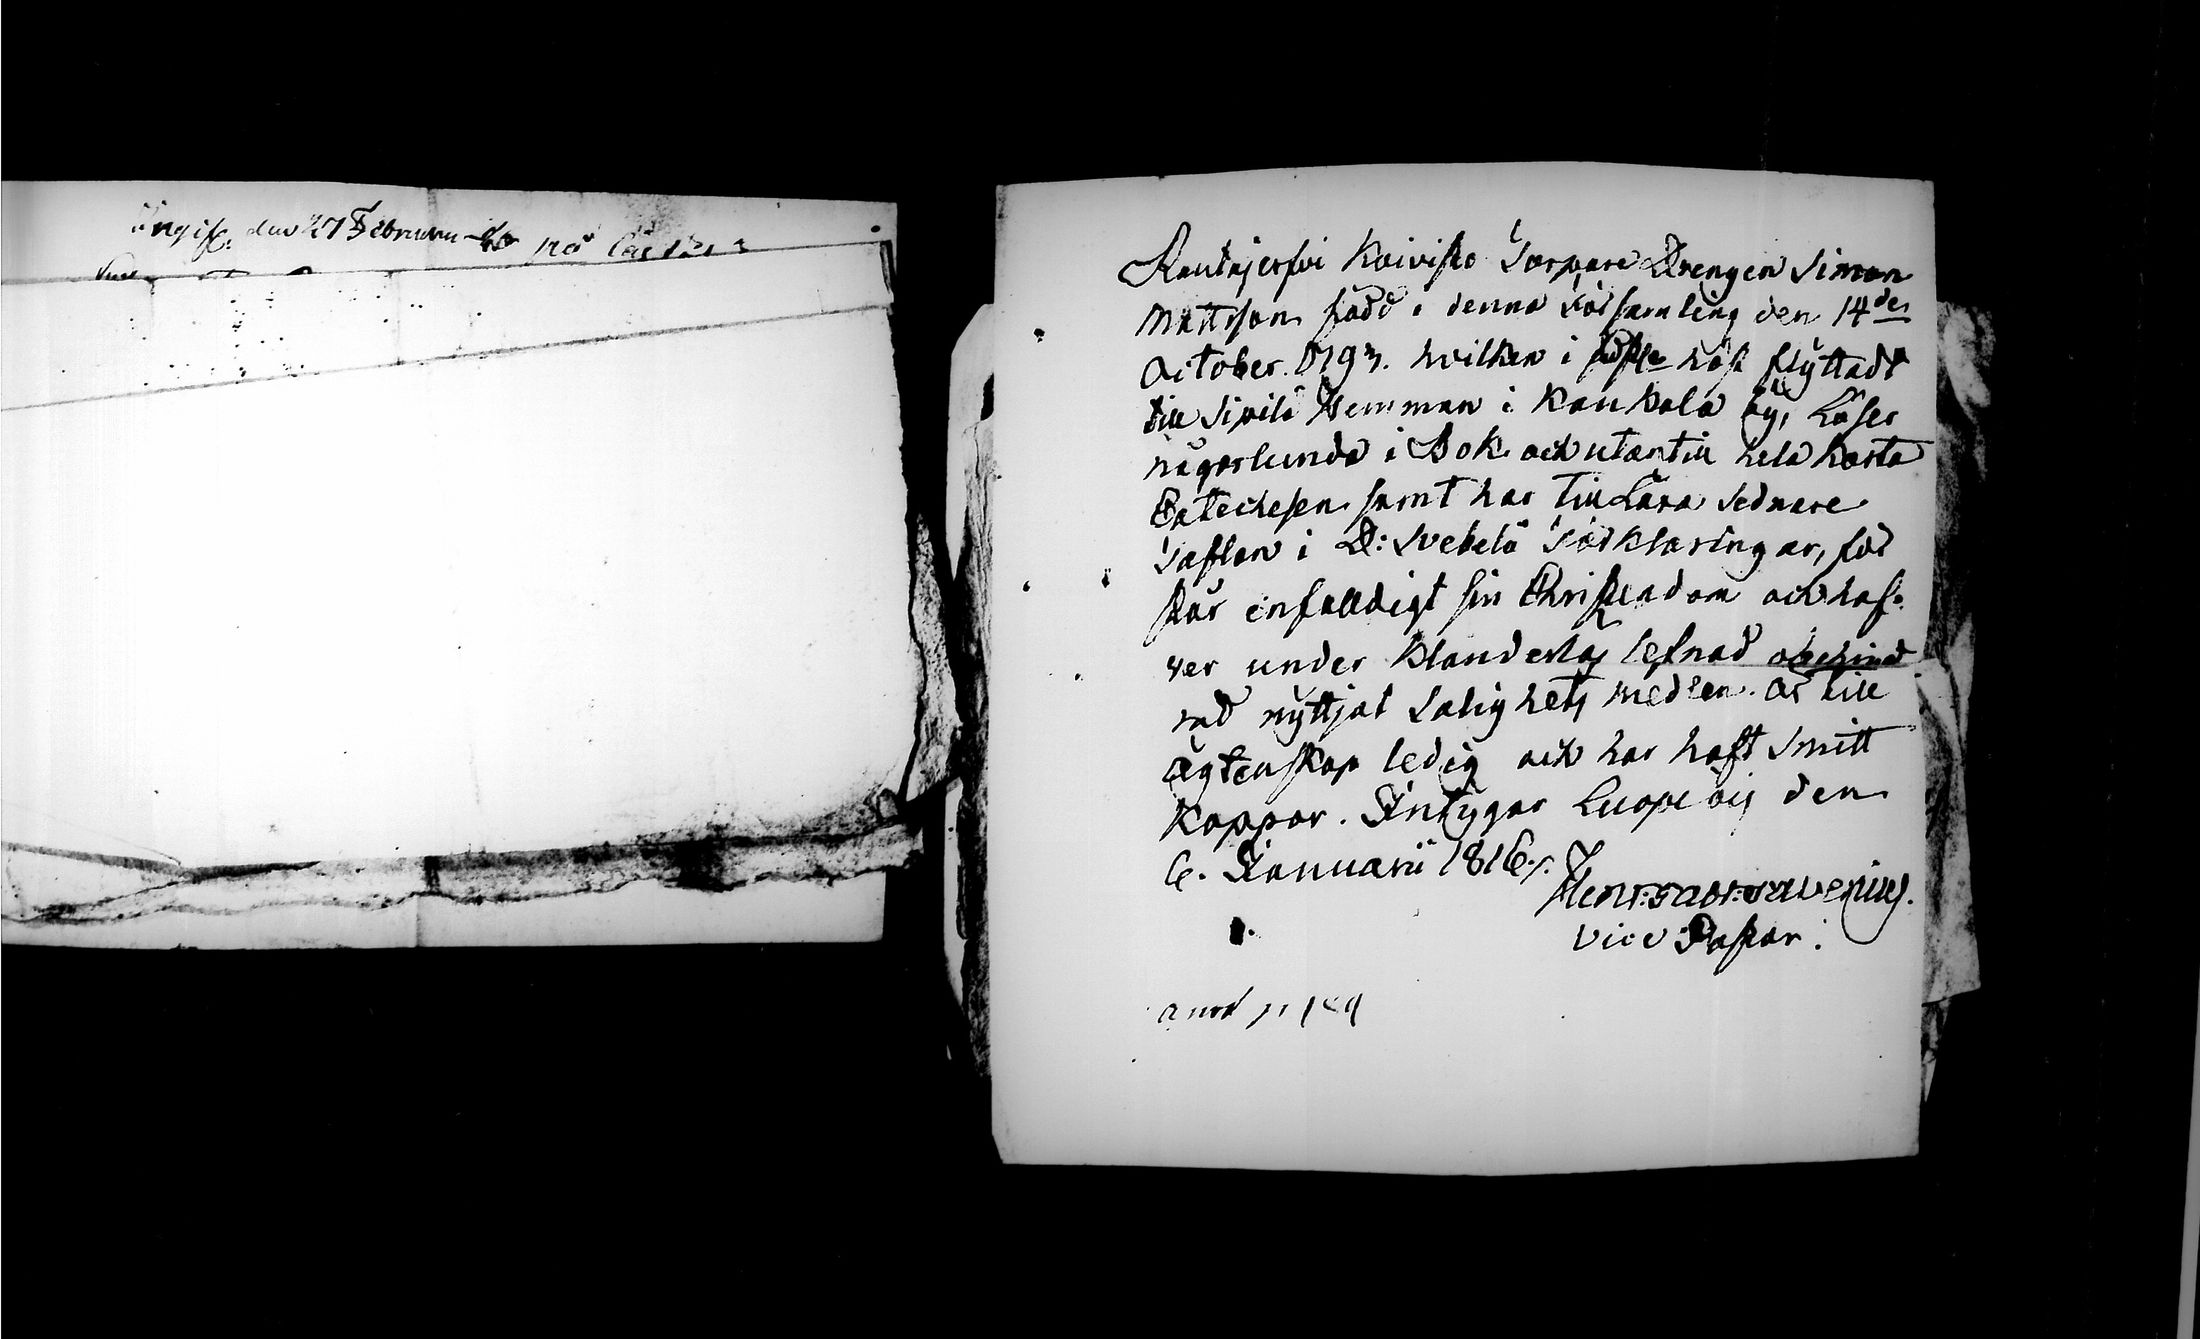 den 27 Februarii
Rautajerfvi Koivisto Torpare Drengen Simon
Mattsson född i denna Församling den 14de
October 1793. hvilken i höst flyttadt
till Sipilä Hemman i Kaukola by, Läser
någorlunda i Bok och utantill hela korta
Catechesen samt har till Lära sednare
Taflan i D: Svebelii Förklaringar, för
står enfalldigt sin Christendom och haf-
ver under klanderlös lefnad obehind
rad nyttjat Salighets medlen. Är till
Ägtenskap ledig och har haft Smitt
Koppor. Intygar Luopiois den
6. Januarii 1816.
vice Pastor.